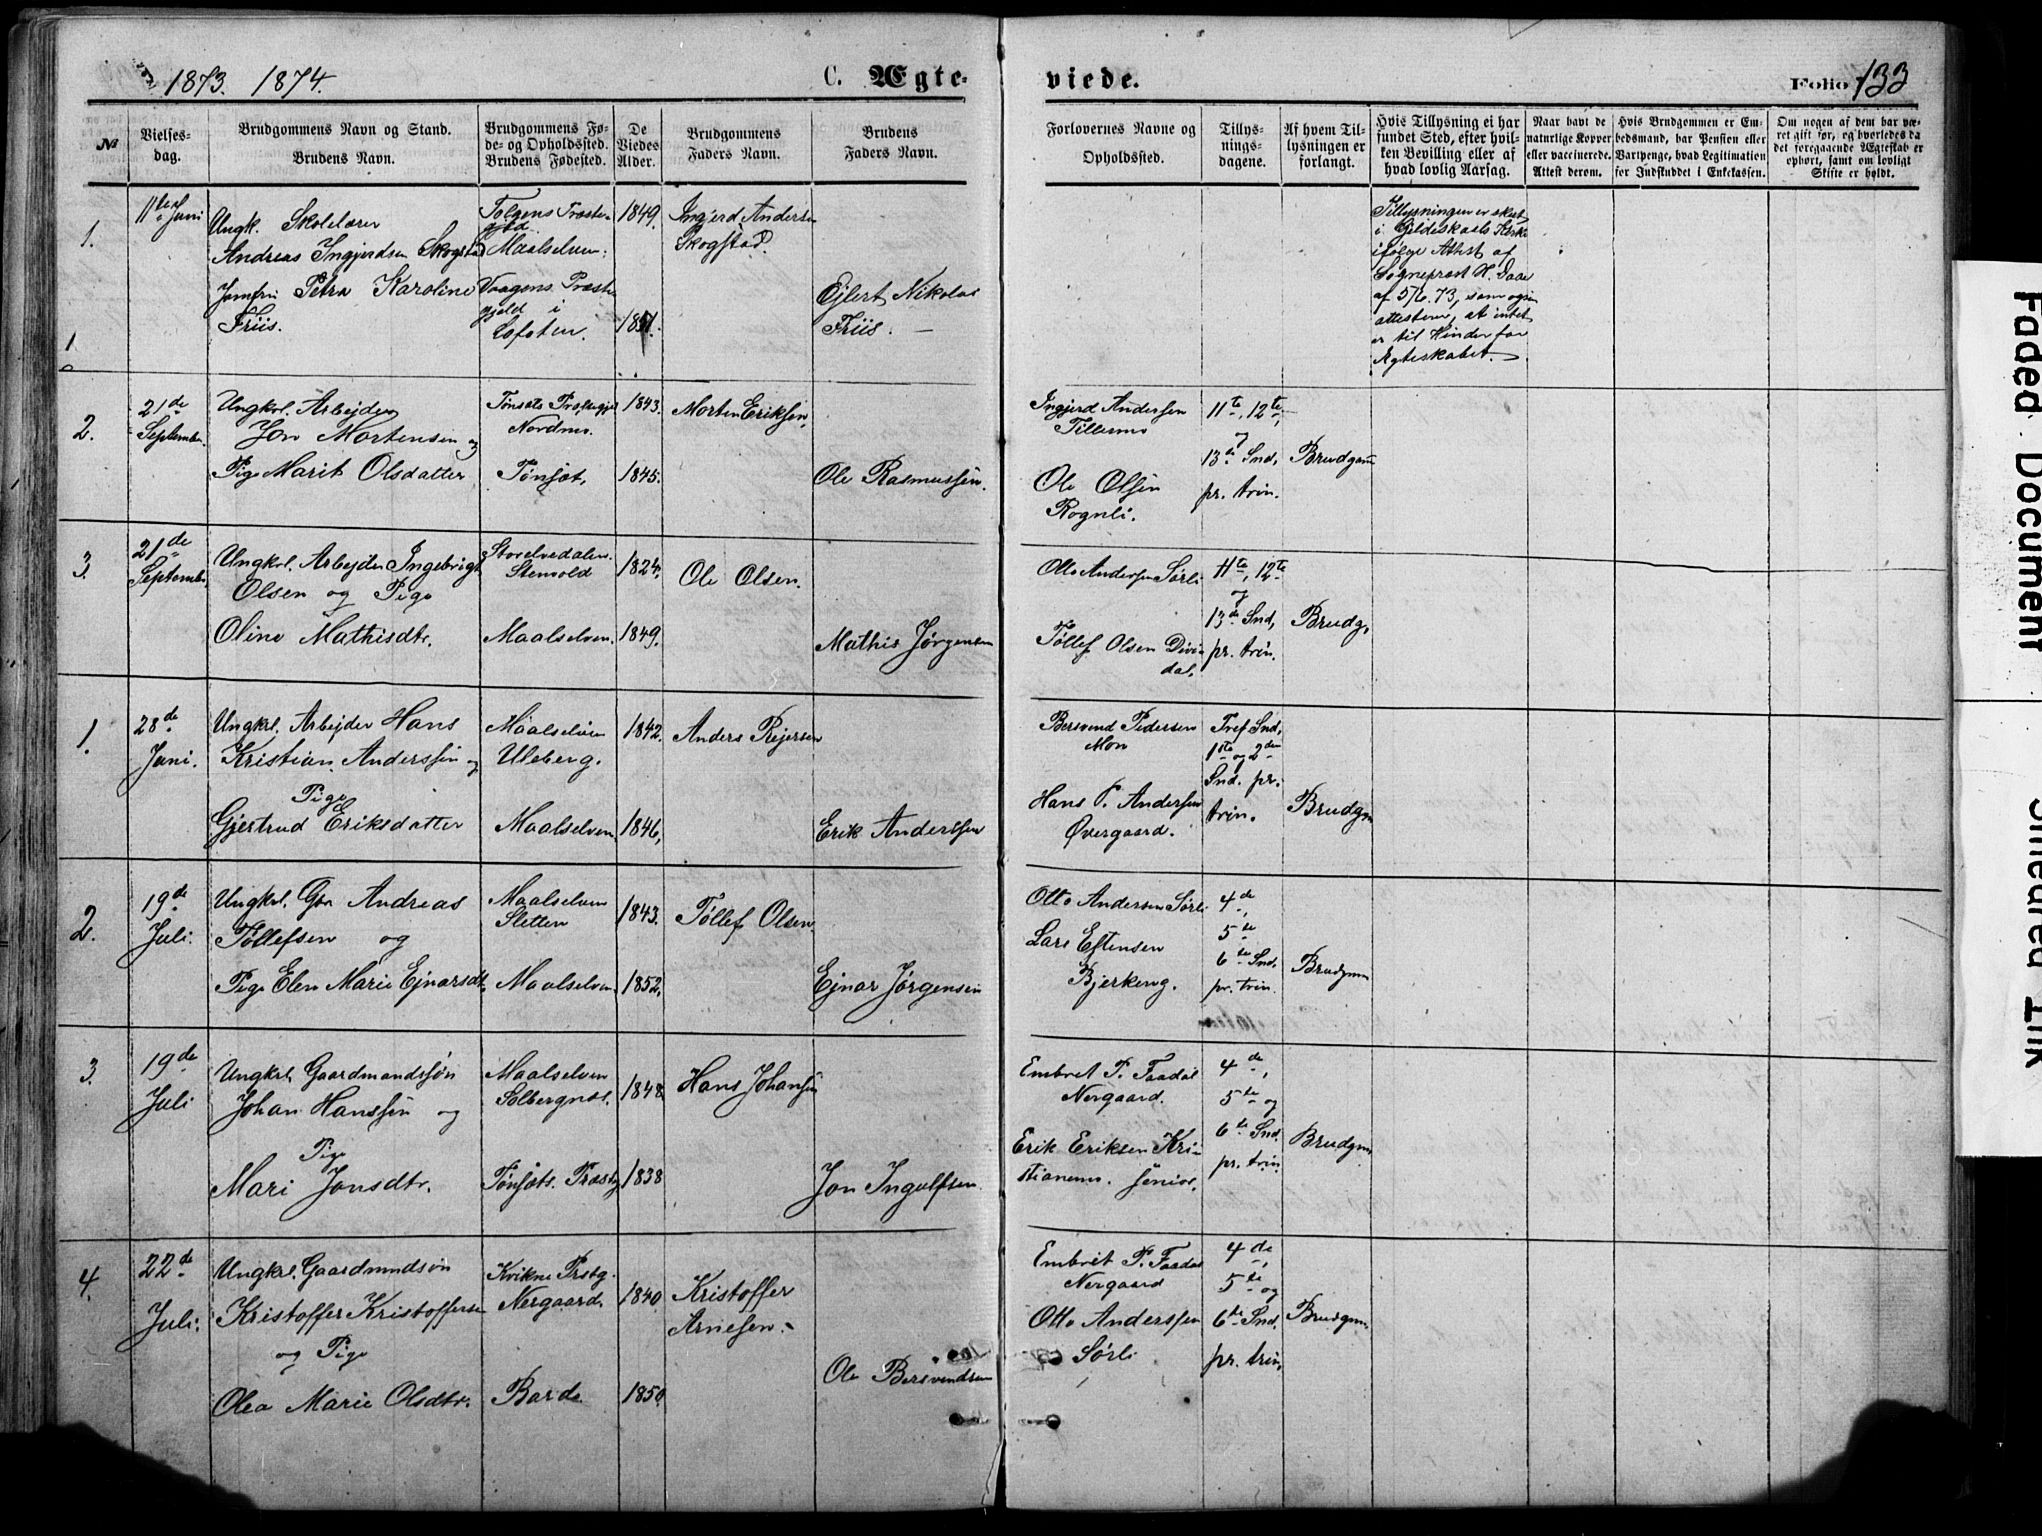 1873. 1874.
C. Ægte-
viede.
Folio 133
№
Vielses-
dag.
Brudgommens Navn og Stand.
Brudens Navn.
Brudgommens Fø-
de- og Opholdssted.
Brudens Fødested.
De
Viedes
Alder.
Brudgommens
Faders Navn.
Brudens
Faders Navn.
Forlovernes Navne og
Opholdssted.
Tillys-
nings-
dagene.
Af hvem Til-
lysningen er
forlangt.
Hvis Tillysning ei har
fundet Sted, efter hvil-
ken Bevilling eller af
hvad lovlig Aarsag.
Naar havt de
naturlige Kopper
eller vaccinerede.
Attest derom.
Hvis Brudgommen er Em-
bedsmand, har Pension eller
Vartpenge, hvad Legitimation
for Indskuddet i Enkekassen.
Om nogen af dem har væ-
ret gift før, og hvorledes da
det foregaaende Ægteskab er
ophørt, samt om lovligt
Skifte er holdt.
1.
11te Juni
Ungk. Skolelærer
Andreas Ingjerdsen Skogstad
Jomfru Petra Karoline
Friis.
Tolgens Præste-
gjld.
Maalselven.
Vaagens Præste-
gjeld i
Lofoten.
1849.
1851.
Ingjerd Andersen
Skogstad
Ejlert Nikolai
Friis. —
Tillysningen er skeet
i Gildeskaals Kirke
ifølge Attest af
Sogneprest H. Daae
af 5/6. 73, som ogsaa
attesterer, at intet
er til Hinder for
Ægteskabet.
1
2.
21de
September.
Ungkrl. Arbejder
Jon Mortensen og
Pige Marit Olsdatter
Tønsæts Præstegjel
Nordmo.
Tønsæt,
1843.
1845.
Morten Eriksen,
Ole Rasmussen.
Ingjerd Andersen
Fillermo
Ole Olsen
Rognli.
11te, 12te,
og
13de Snd,
pr. trin.
Brudgom
3.
21de
September
Ungkrl. Arbejder Ingebrigt
Olsen og Pige
Oline Mathisdtr.
Storelvedalen.
Stenvold
Maalselven.
1824,
1849.
Ole Olsen.
Mathis Jørgensen
Otto Andersen Sørli
Tøllef Olsen Divi-
dal,
11te, 12te
og
13de Snd,
pr. trin.
Brudg,
1.
28de
Juni.
Ungkrl. Arbejder Hans
Kristian Anderssen og
Pige
Gjertrud Eriksdatter
Maalselven
Uleberg.
Maalselven
1842.
1846,
Anders Rejersen
Erik Anderssen
Bersvend Pedersen
Mon
Hans P. Andersen
Øvergaard.
Tref Snd,
1ste og 2den
Snd. pr.
trin.
Brudgm
2.
19de
Juli.
Ungkrl. Gbr Andreas
Tøllefsen og
Pige Elen Marie Ejnarsdt.
Maalselven
Sletten
Maalselven
1843.
1852,
Tøllef Olsen
Ejnar Jørgensen
Otto Andersen Sørli
Lars Estensen
Bjerkeng.
4de,
5te
6te Snd.
pr. trin.
Brudgmm
3.
19de
Juli
Ungkrl. Gaardmandssøn
Johan Hanssen og
Pige
Mari Jonsdtr.
Maalselven
Solbergnæs.
Tønsæts. Præstg
1848
1838
Hans Johansen
Jon Ingulfsen.
Embret P. Faadal
Nergaard.
Erik Eriksen Kri-
stianemo. senior.
4de,
5te og
6te Snd.
pr. trin
Brudgmm
4.
22de
Juli.
Ungkrl. Gaardmndsøn
Kristoffer Kristoffersen
og Pige
Olea Marie Olsdtr.
Kvikne Prstg.
Nergaard.
Bardo.
1840
1850
Kristoffer
Arnesen.
Ole Bersvendsen
Embret P. Faadal
Nergaard
Otto Anderssen
Sørli.
4de,
5te og
6te Snd.
pr. trin,
Brudgmm,
Faded Document
Smeared Ink